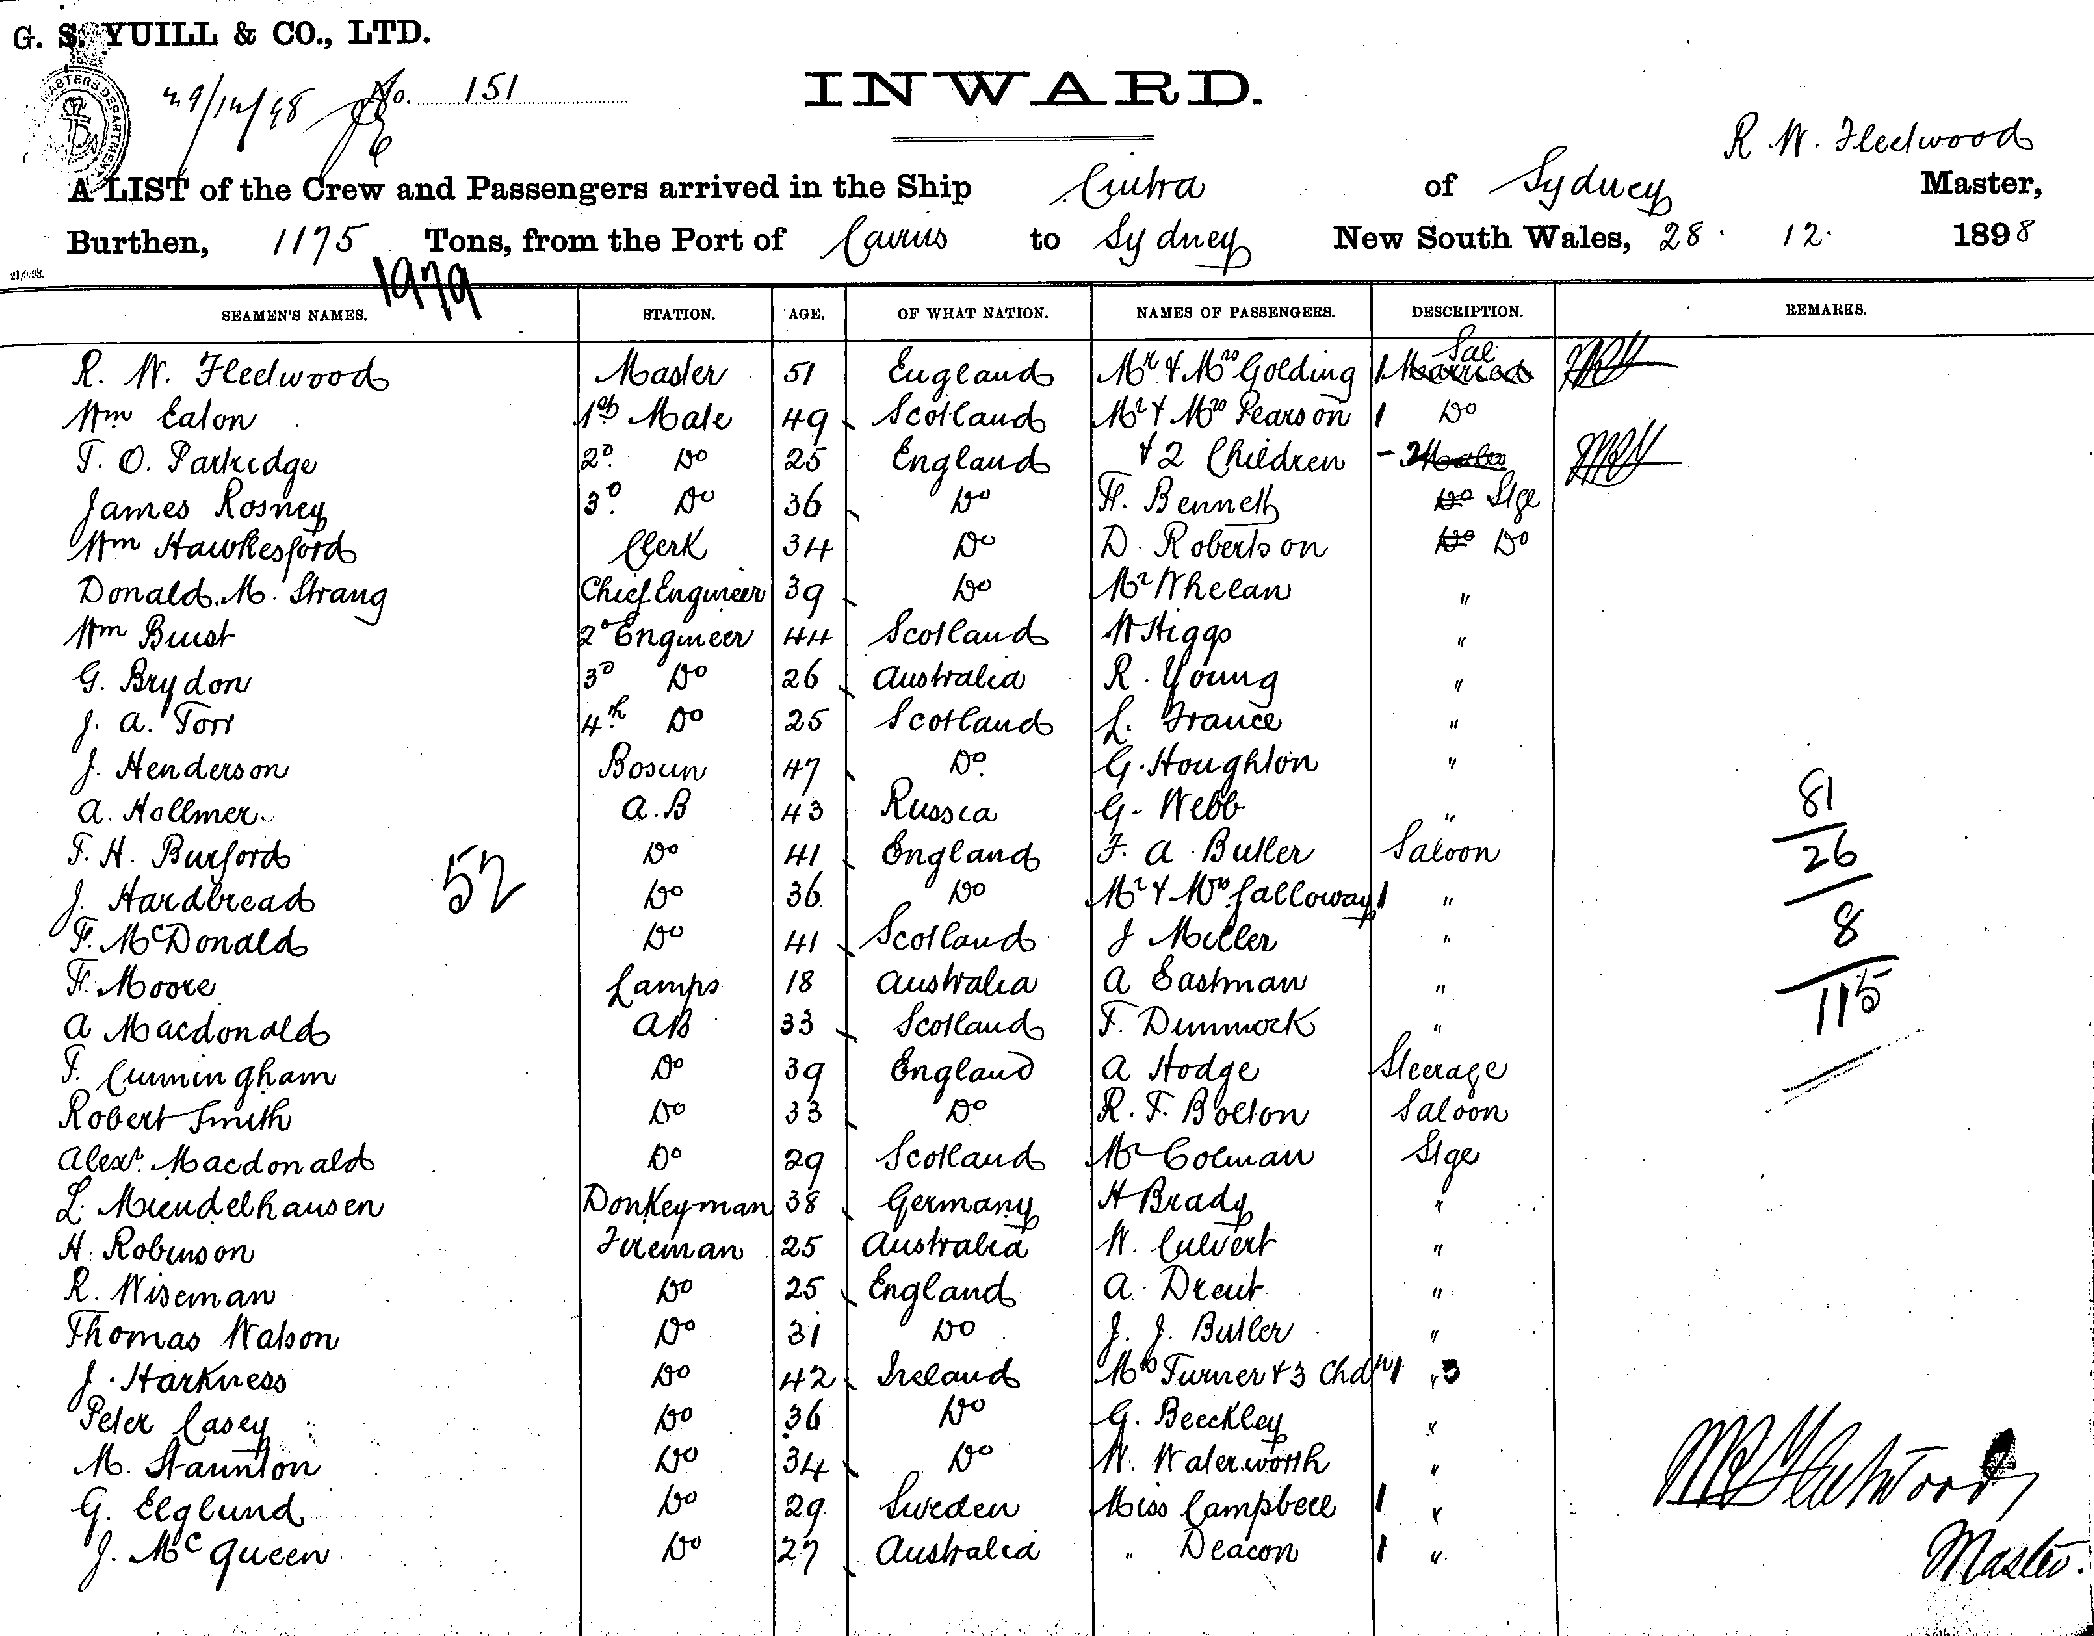 G. S. YUILL & CO., LTD.
29/12/98 No. 151
INWARD.
R. W. Fleetwood
A LIST of the Crew and Passengers arrived in the Ship Cintra of Sydney Master,
Burthen, 1175 Tons, from the Port of Cairns to Sydney New South Wales, 28. 12. 1898
1979
SEAMEN'S NAMES. STATION. AGE. OF WHAT NATION. NAMES OF PASSENGERS. DESCRIPTION. REMARKS.
R. W. Fleetwood Master 51 England Mr & Mrs Golding 1 Married Sal
Wm Eaton 1st Mate 49 Scotland Mr & Mrs Pearson 1 Do
T. O. Partridge 2d. Do 25 England & 2 Children - 2 Males
James Rosney 3d. Do 36 Do H. Bennett Do Stge
Wm Hawkesford Clerk 34 Do D. Robertson Do Do
Donald. M. Strang Chief Engineer 39 Do Mr Whelan "
Wm Buist 2d Engineer 44 Scotland W Higgs "
G. Brydon 3d Do 26 Australia R. Young "
J. A. Torr 4th Do 25 Scotland L. France "
J. Henderson Bosun 47 Do. G. Houghton "
A. Hollmer. A.B 43 Russia G. Webb "
T. H. Burford Do 41 England F. A. Butler Saloon
J. Hardbread Do 36. Do Mr & Mrs Galloway 1 "
F. McDonald Do 41 Scotland J Miller "
F. Moore Lamps 18 Australia A Eastman "
A Macdonald AB 33 Scotland F. Dimmock "
T. Cunningham Do 39 England A Hodge Steerage
Robert Smith Do 33 Do R. F. Bolton Saloon
Alexr. Macdonald Do 29 Scotland Mr Colman Stge
L. Mundelhausen Donkeyman 38 Germany H Brady "
H. Robinson Fireman 25 Australia W. Culvert "
R. Wiseman Do 25 England A. Drent "
Thomas Watson Do 31 Do J. J. Butler "
J. Harkness Do 42 Ireland Mrs Turner & 3 Chdn 1 " 3
Peter Casey Do 36 Do G. Beeckley "
M. Staunton Do 34 Do W. Waterworth "
G. Elglund Do 29 Sweden Miss Campbell 1 "
J. McQueen Do 27 Australia " Deacon 1 "
52
81
26
8
115
Fleetwood
Master.